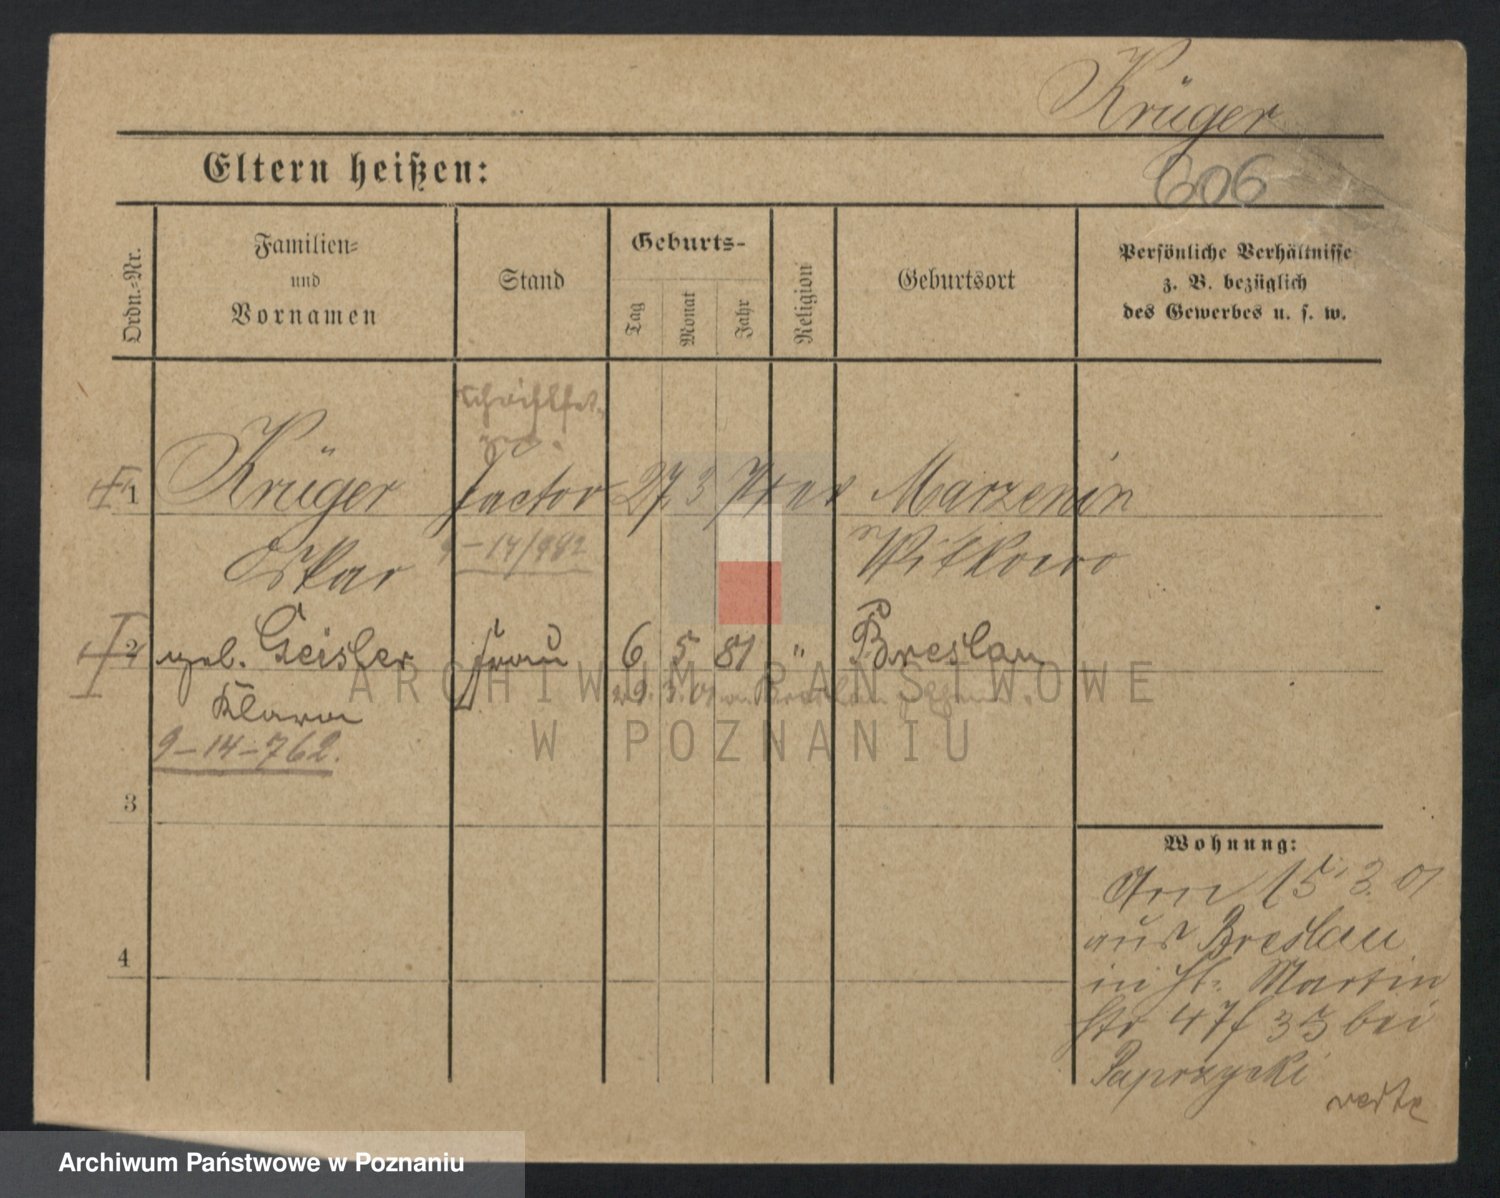 Krüger
Eltern heißen:
606
Ordn.-Nr.
Familien-
und
Vornamen
Stand
Geburts-
Tag
Monat
Jahr
Religion
Geburtsort
Persönliche Verhältnisse
z. B. bezüglich
des Gewerbes u. s. w.
Schriftset-
zer.
1 Krüger Factor 27 3 ev Marzenin
Oskar 9-14/982 Witkowo
2 geb. Geisler Frau 6 5 81 " Breslau
Klara
9-14-762.
3
4
Wohnung:
Am 15.3.01
aus Breslau
in St. Martin
str 47 bei
Paprzycki
verte
ARCHIWUM PAŃSTWOWE
W POZNANIU
Archiwum Państwowe w Poznaniu